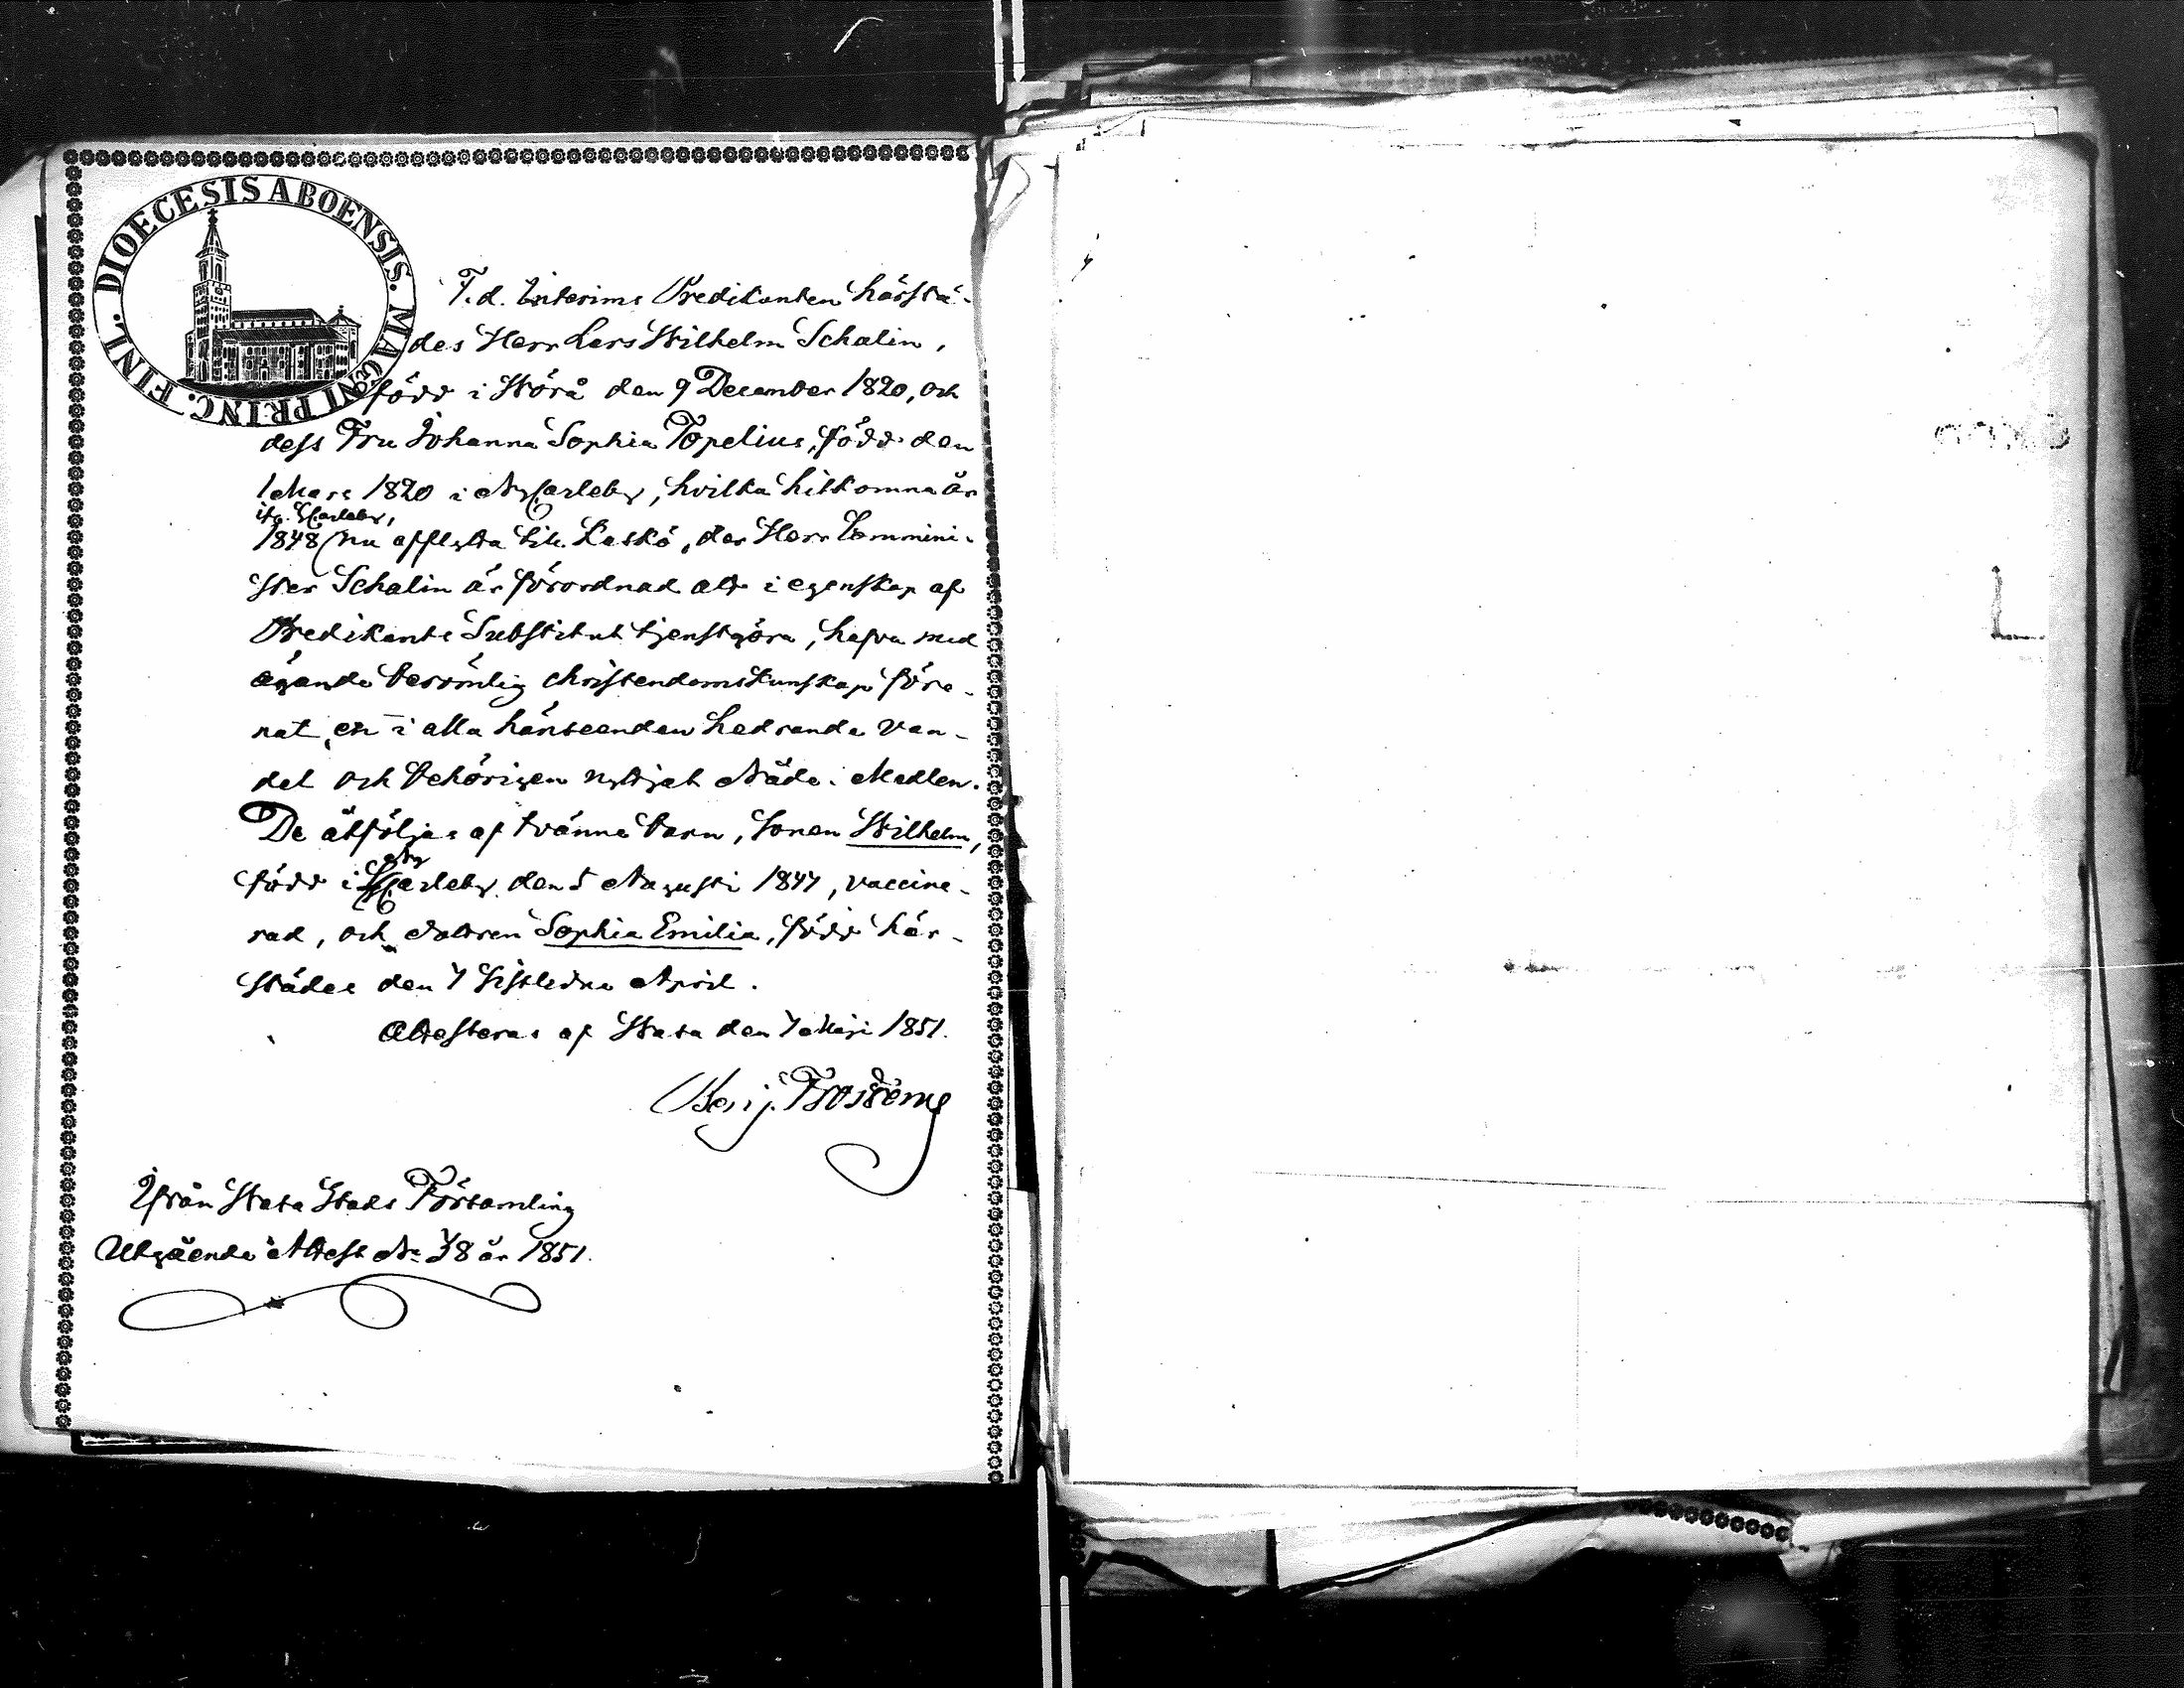 DIOECESIS ABOENSIS. MAGNI PRINC. FINL.
T. d. Interims Predikanten härstä-
des Herr Lars Wilhelm Schalin,
född i Wörå den 9 December 1820, och
dess Fru Johanna Sophia Topelius, född den
1 Mars 1820 i NyCarleby, hvilka hitkomna år
ifr. Carleby,
1848 nu afflytta till Kaskö, der Herr Commini-
ster Schalin är förordnad att i egenskap af
Predikants Substitut tjenstgöra, hafva med
ägande berömlig christendomskunskap före-
nat en i alla hänseenden hedrande van-
del och behörigen nyttjat Nåde-Medlen.
De åtföljas af tvänne barn, Sonen Wilhelm,
Ny
född i Carleby den 5 Augusti 1847, vaccine-
rad, och dottren Sophia Emilia, född här-
städes den 7 sistledne April.
Attesteras af Wasa den 7 Maji 1851.
Benj. Frosterus
Ifrån Wasa Stads Församling
Utgående Attest No 38 år 1851.